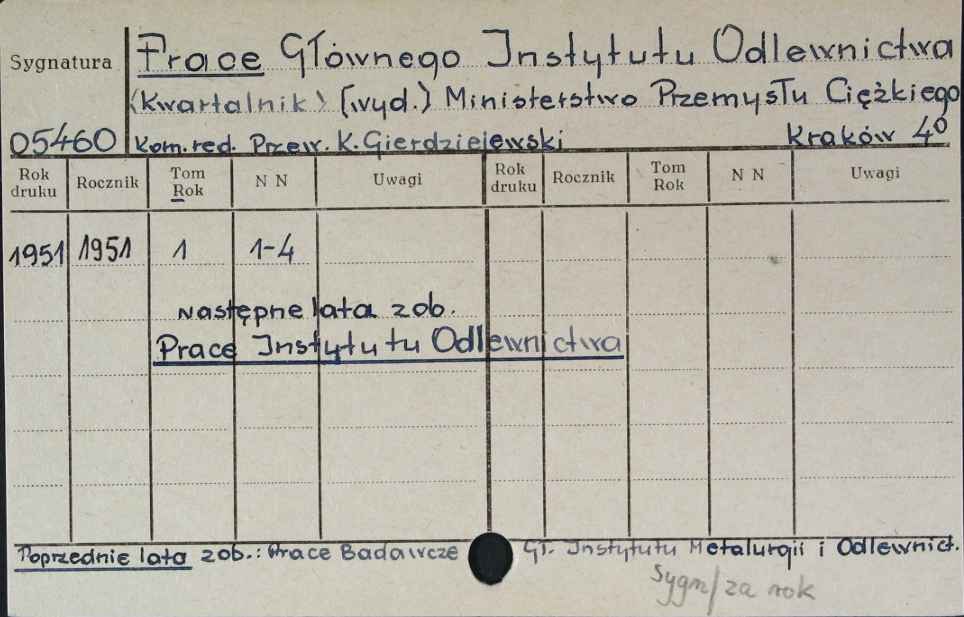 Sygnatura
Prace Głównego Instytutu Odlewnictwa
(Kwartalnik) (wyd.) Ministerstwo Przemysłu Ciężkiego
05460 Kom. red. Przew. K. Gierdziejewski Kraków 4º
Rok druku Rocznik Tom Rok N N Uwagi Rok druku Rocznik Tom Rok N N Uwagi
1951 1951 1 1-4
Następne lata zob.
Prace Instytutu Odlewnictwa
Poprzednie lata zob.: Prace Badawcze Gł. Instytutu Metalurgii i Odlewnict.
Sygn/za rok